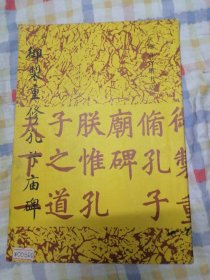 御製重修孔子庙碑
御製重
脩孔子
廟碑
朕惟孔
子之道
天下